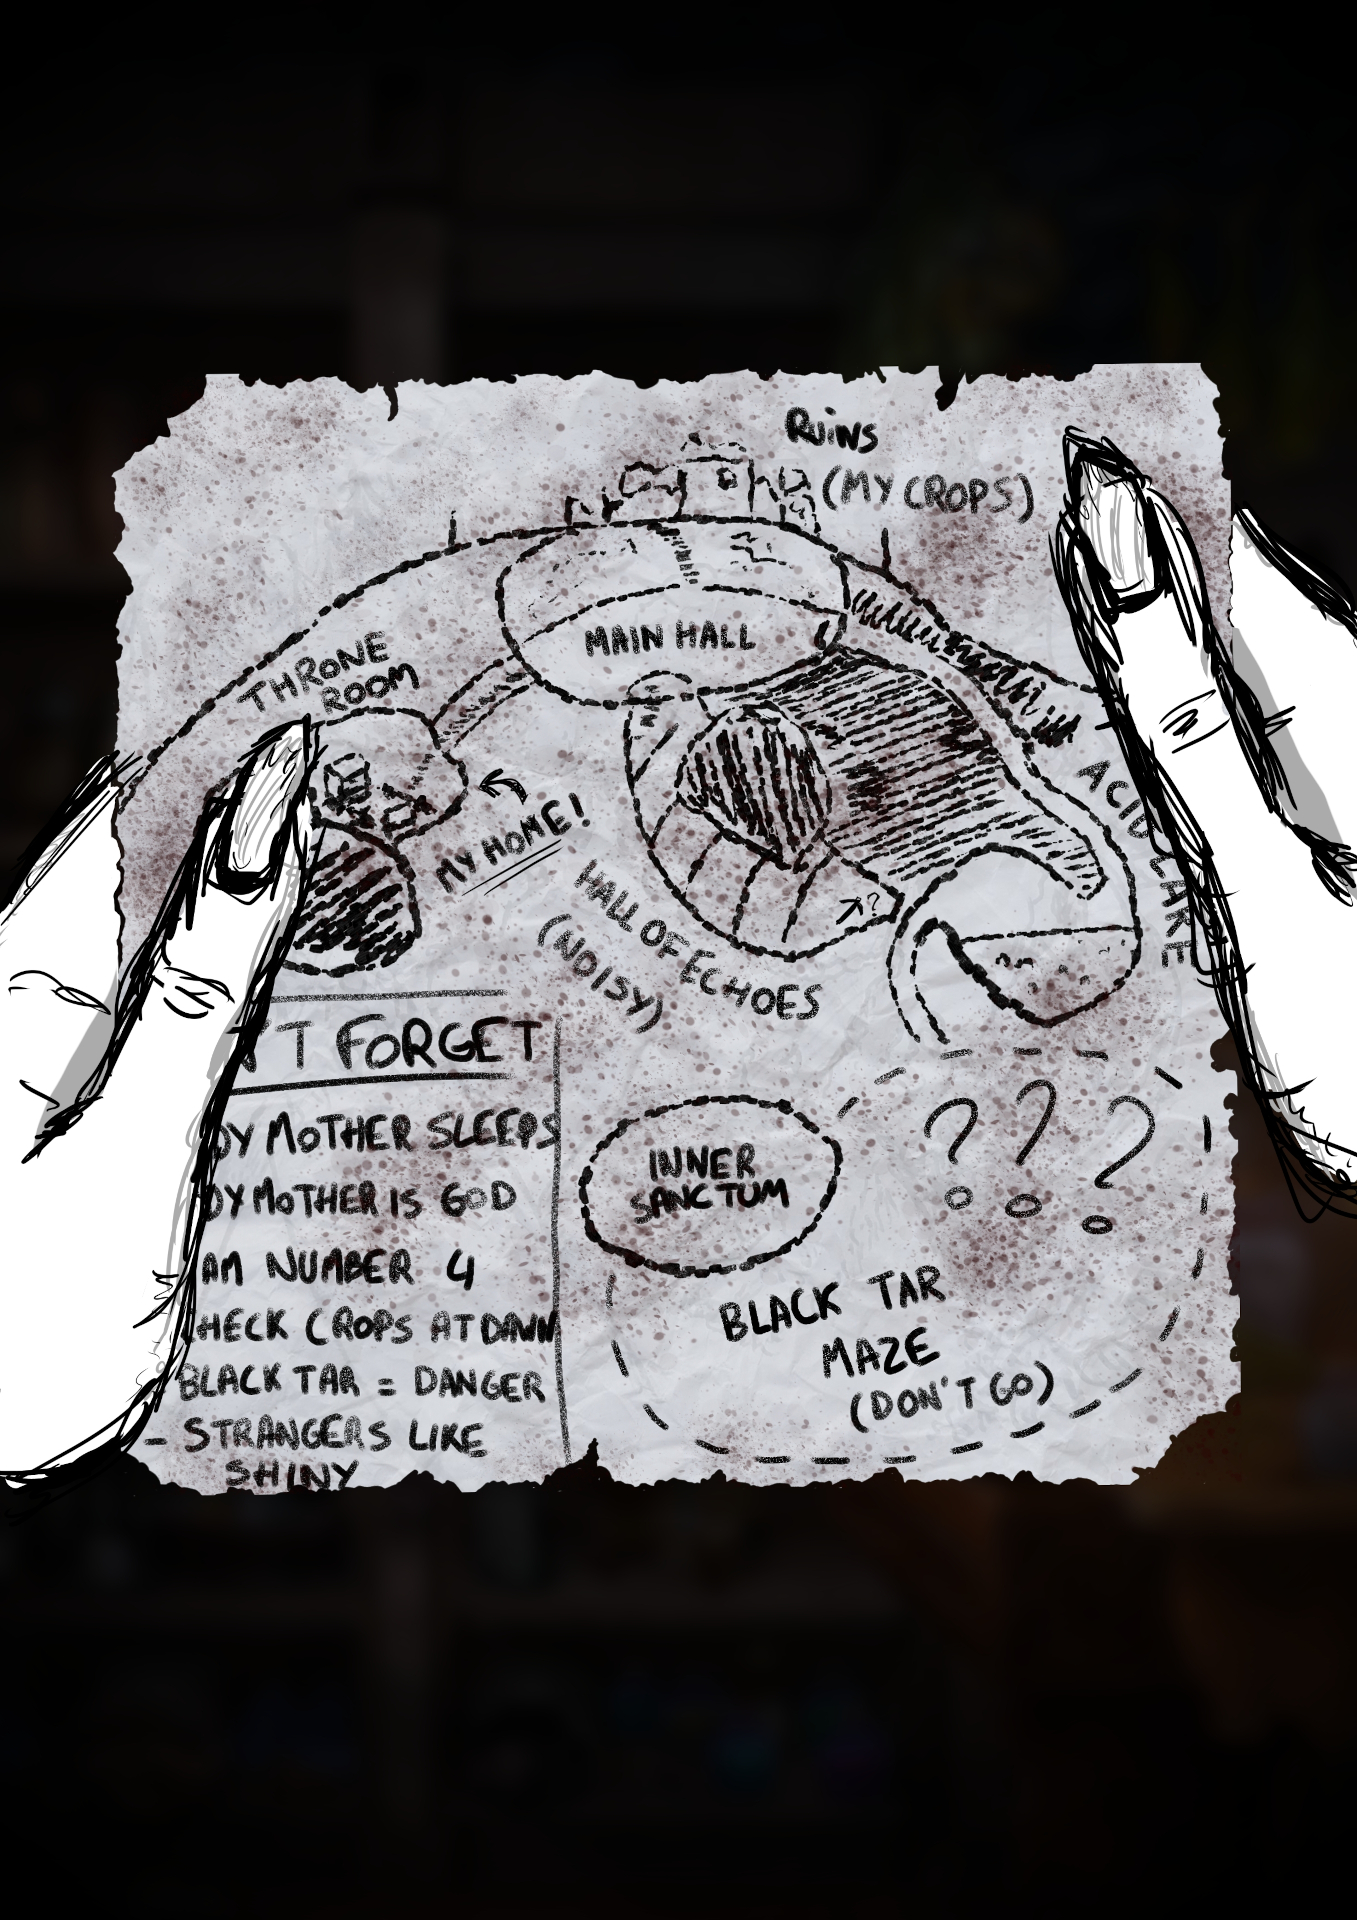 RUINS
(MY CROPS)
MAIN HALL
THRONE
ROOM
MY HOME!
ACID LAKE
HALL OF ECHOES
(NOISY)
?
'T FORGET
DY MOTHER SLEEPS
DY MOTHER IS GOD
AM NUMBER 4
HECK CROPS AT DAWN
BLACK TAR = DANGER
- STRANGERS LIKE
SHINY
INNER
SANCTUM
? ? ?
BLACK TAR
MAZE
(DON'T GO)